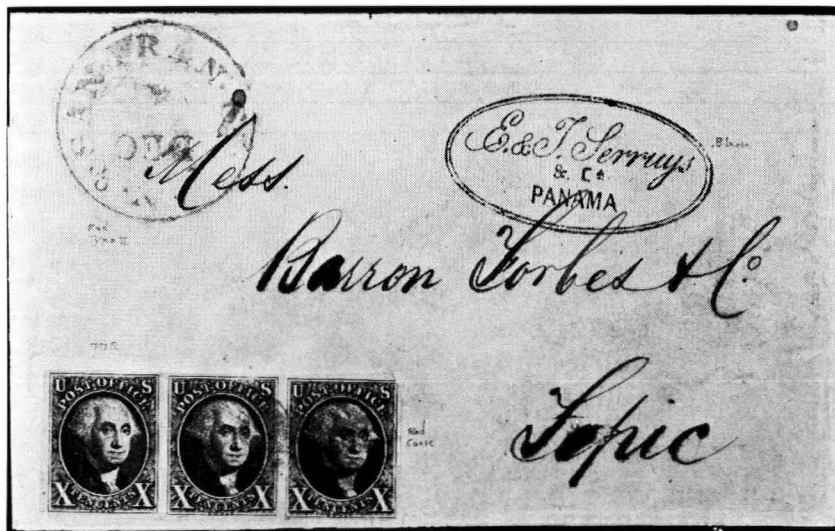 SAN FRAN
DEC
E. & J. Serruys
& Co.
PANAMA
Black
Mess.
Red
Barron Forbes & Co.
77R
U S
POST OFFICE
X TEN CENTS X
U S
POST OFFICE
X TEN CENTS X
U S
POST OFFICE
X TEN CENTS X
Red
Tepic